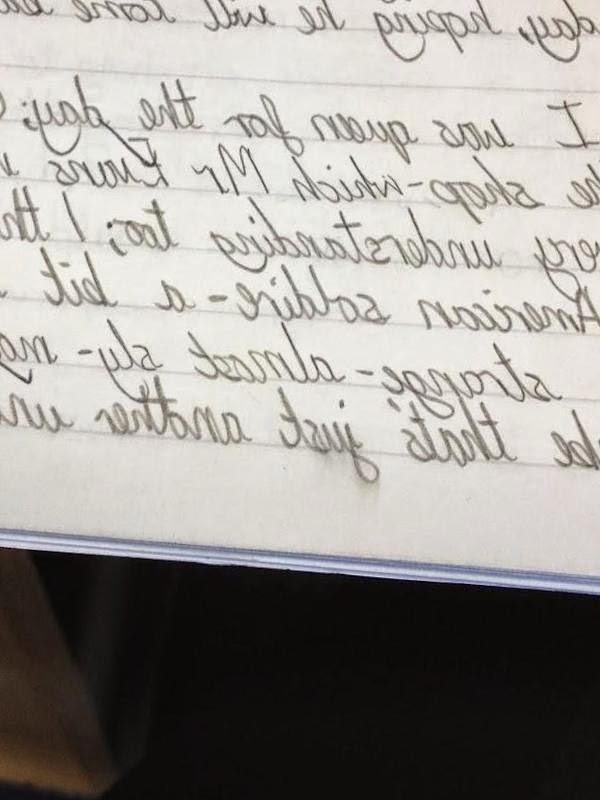 day, hoping he will come
I was queen for the day;
shop-which Mr Evans
understanding too; I
American soldire-a bit
strange-almost sly-
that's just another